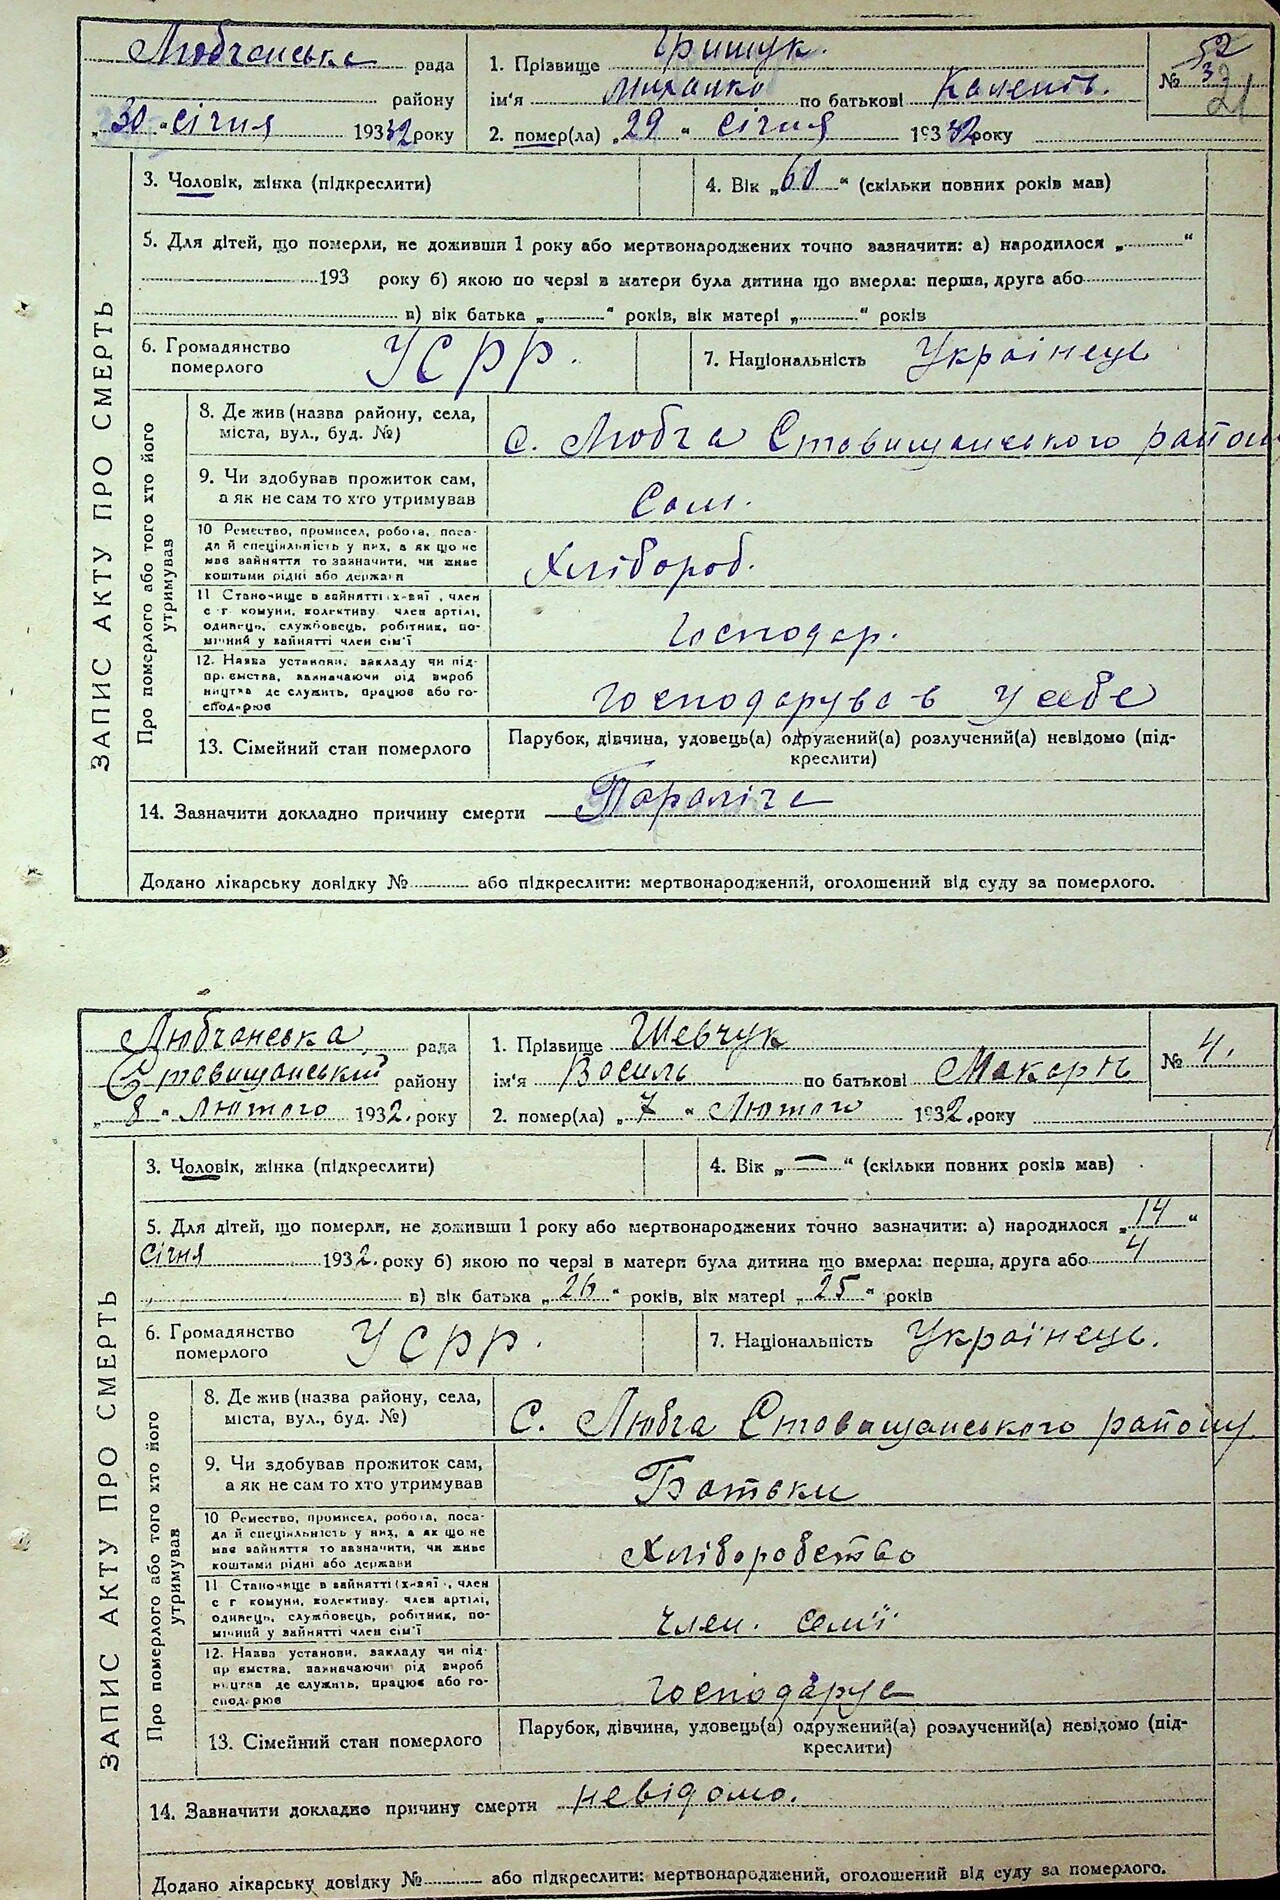 Любчанська рада
району
„30“ Січня 1932 року
1. Прізвище Грищук.
ім'я по батькові
2. помер(ла) „29“ Січня 1932 року
№ 3
52
21
ЗАПИС АКТУ ПРО СМЕРТЬ
3. Чоловік, жінка (підкреслити)
4. Вік „60“ (скільки повних років мав)
5. Для дітей, що померли, не доживши 1 року або мертвонароджених точно зазначити: а) народилося „ “
193 року б) якою по черзі в матери була дитина що вмерла: перша, друга або
в) вік батька „ “ років, вік матері „ “ років
6. Громадянство
померлого
УСРР.
7. Національність Українець
Про померлого або того хто його
утримував
8. Де жив (назва району, села,
міста, вул., буд. №)
С. Любча Ставищанського району
9. Чи здобував прожиток сам,
а як не сам то хто утримував
Сам.
10 Ремество, промисел, робота, поса-
да й спеціяльність у них, а як що не
має зайняття то зазначити, чи живе
коштами рідні або держави
Хлібороб.
11 Становище в зайнятті (х-вяї, член
с г комуни, колективу член артілі,
одинець, службовець, робітник, по-
мічний у зайнятті член сім'ї
Господар.
12. Назва установи, закладу чи під-
приємства, зазначаючи рід вироб
ництва де служить, працює або го-
сподарює
Господарував у себе
13. Сімейний стан померлого
Парубок, дівчина, удовець(а) одружений(а) розлучений(а) невідомо (під-
креслити)
14. Зазначити докладно причину смерти Параліча
Додано лікарську довідку № або підкреслити: мертвонароджений, оголошений від суду за померлого.
Любчанська рада
Ставищанський району
„8“ Лютого 1932. року
1. Прізвище Шевчук
ім'я Василь по батькові Макарів
2. помер(ла) „7“ Лютого 1932. року
№ 4.
ЗАПИС АКТУ ПРО СМЕРТЬ
3. Чоловік, жінка (підкреслити)
4. Вік „—“ (скільки повних років мав)
5. Для дітей, що померли, не доживши 1 року або мертвонароджених точно зазначити: а) народилося „14“
Січня 1932. року б) якою по черзі в матери була дитина що вмерла: перша, друга або 4
в) вік батька „26“ років, вік матері „25“ років
6. Громадянство
померлого
УСРР.
7. Національність Українець.
Про померлого або того хто його
утримував
8. Де жив (назва району, села,
міста, вул., буд. №)
С. Любча Ставищанського району
9. Чи здобував прожиток сам,
а як не сам то хто утримував
Батьки
10 Ремество, промисел, робота, поса-
да й спеціяльність у них, а як що не
має зайняття то зазначити, чи живе
коштами рідні або держави
Хліборобство
11 Становище в зайнятті (х-вяї, член
с г комуни, колективу член артілі,
одинець, службовець, робітник, по-
мічний у зайнятті член сім'ї
член. семї
12. Назва установи, закладу чи під-
приємства, зазначаючи рід вироб
ництва де служить, працює або го-
сподарює
Господарує
13. Сімейний стан померлого
Парубок, дівчина, удовець(а) одружений(а) розлучений(а) невідомо (під-
креслити)
14. Зазначити докладно причину смерти невідомо.
Додано лікарську довідку № або підкреслити: мертвонароджений, оголошений від суду за померлого.